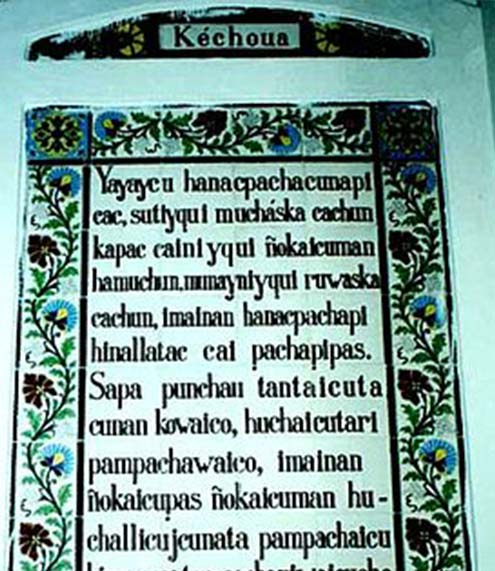 Kéchoua
Yayaycu hanacpachacunapi
cac, sutiyqui mucháska cachun
kapac cainiyqui ñokaicuman
hamuchun.munayniyqui ruwaska
cachun, imainan hanacpachapi
hinallatac cai pachapipas.
Sapa punchau tantaicuta
cunan kowaico, huchaicutari
pampachawaico, imainan
ñokaicupas ñokaicuman hu-
challicujcunata pampachaicu